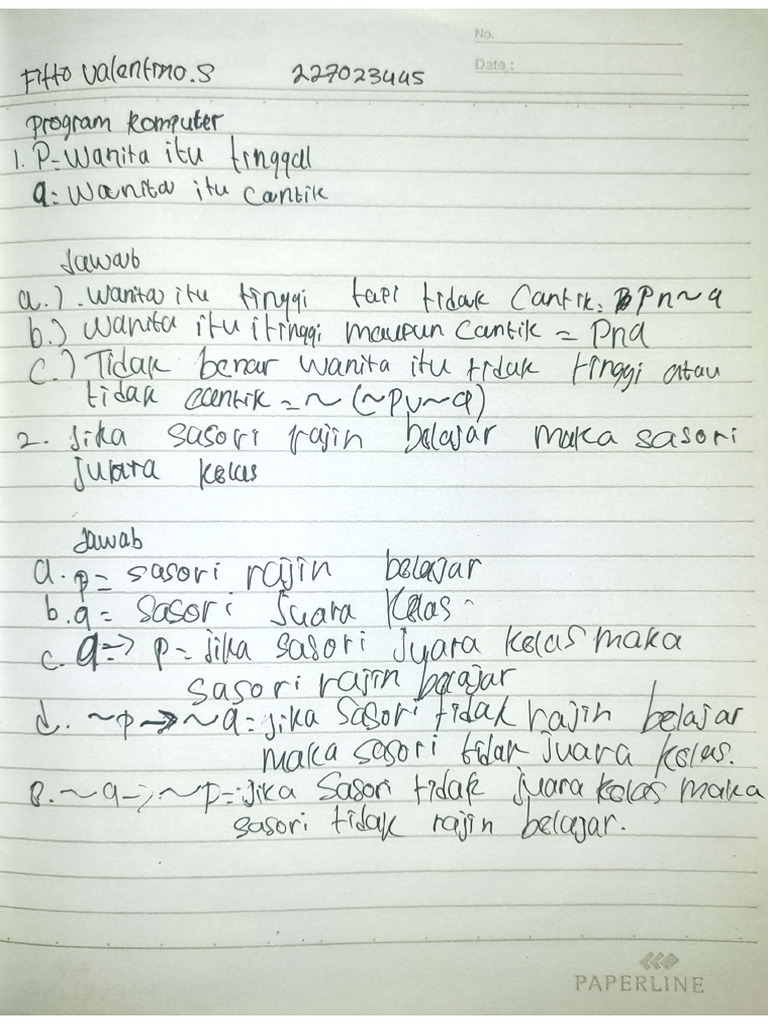 No.
Date :
Fitto Valentino.S 227023445
Program Komputer
1. P=Wanita itu tinggal
q=Wanita itu cantik
Jawab
a.). Wanita itu tinggi tapi tidak Cantik: P n ~ q
b.) Wanita itu itinggi maupun cantik = P n q
c.) Tidak benar wanita itu tidak tinggi atau
tidak cantik = ~ (~p v ~q)
2. Jika sasori rajin belajar maka sasori
juara kelas
Jawab
a. p = sasori rajin belajar
b. q = Sasori Juara Kelas
c. q => p = jika sasori Juara kelas maka
sasori rajin belajar
d. ~p -> ~q = jika Sasori tidak rajin belajar
maka sasori tidak juara kelas.
e. ~q => ~p = jika Sasori tidak juara kelas maka
sasori tidak rajin belajar.
PAPERLINE